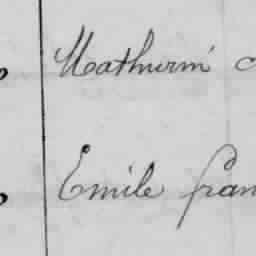 Mathurin
Emile fran